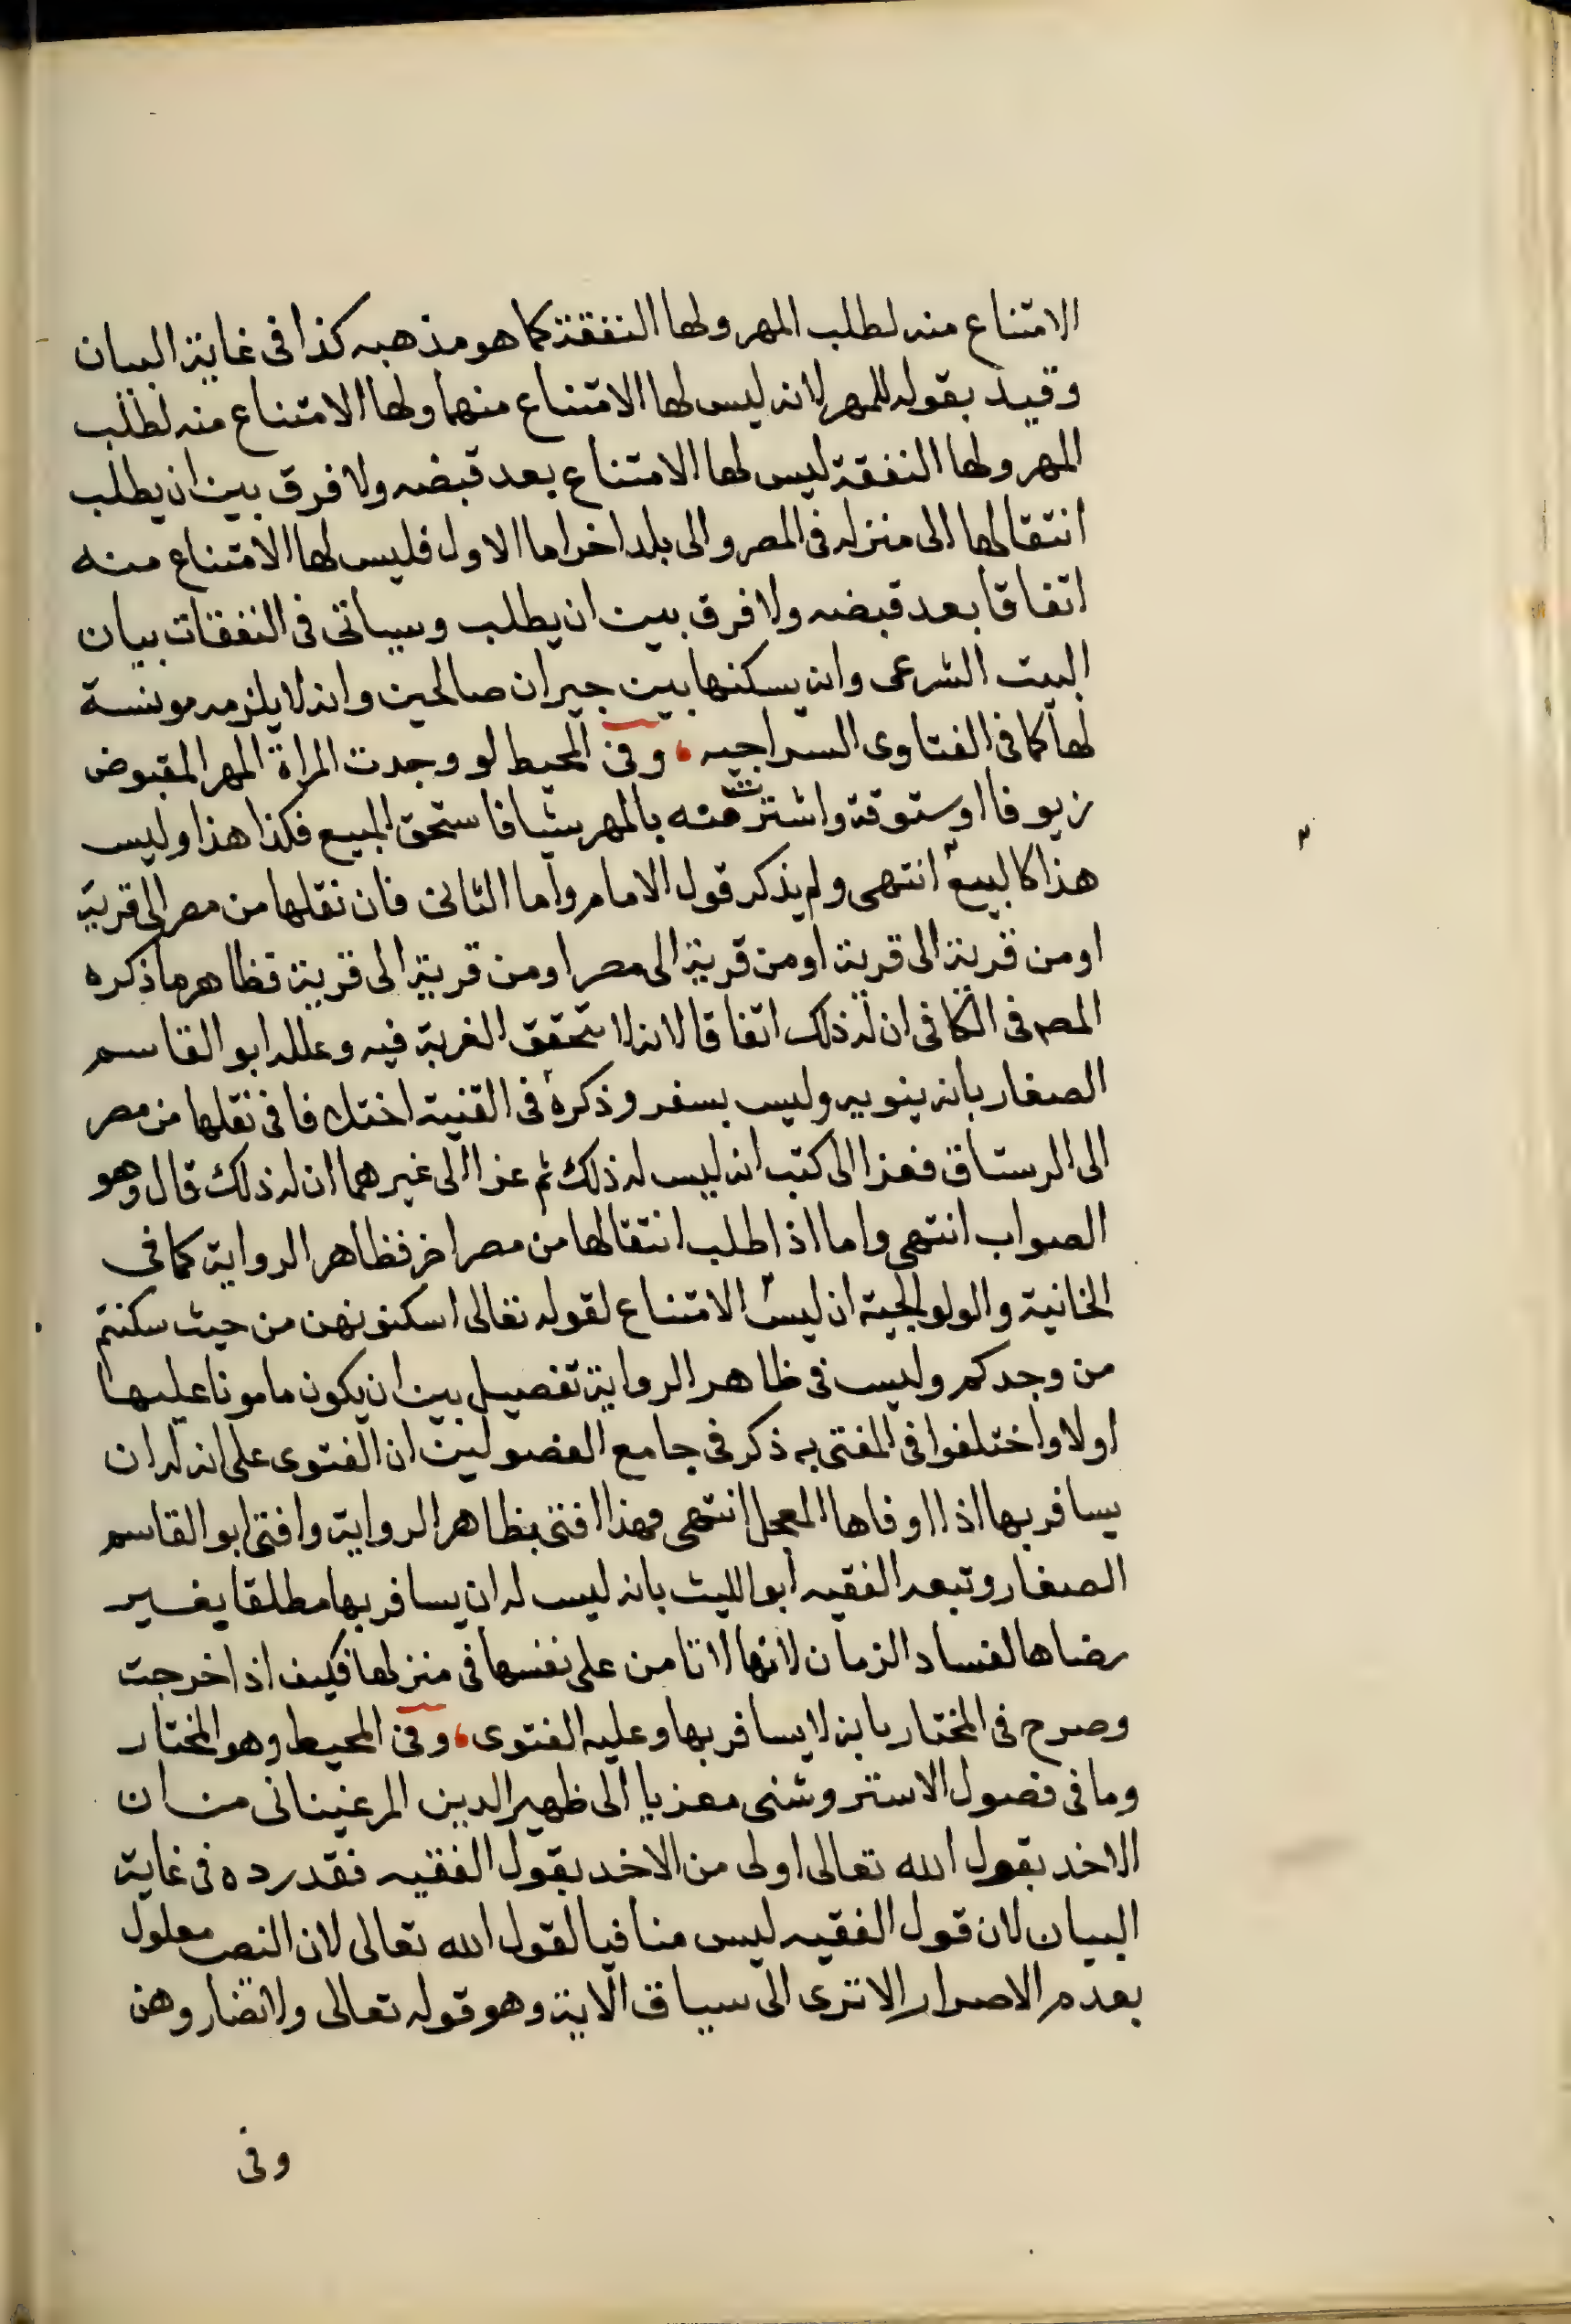 الامتناع منه لطلب المهر ولها النفقة كما هو مذهبه كذا فى غاية البيان
وقيد بقوله للمهر لانه ليس لها الامتناع منهما ولها الامتناع منه لطلب
المهر ولها النفقة ليس لها الامتناع بعد قبضه ولا فرق بين ان يطلب
انتقالها الى منزله فى المصر والى بلد اخر اما الاول فليس لها الامتناع منه
اتفاقا بعد قبضه ولا فرق بين ان يطلب وسياتى فى النفقات بيان
البيت الشرعى وانه يسكنها بين جيران صالحين وانه لا يلزمه مونسة
لها كما فى الفتاوى السراجيه، وفى المحيط لو وجدت المراة المهر المقبوض
زيوفا او ستوقة واشترت منه بالمهر شيا فاستحق المبيع فكذا هذا وليس
هذا كالبيع انتهى ولم يذكر قول الامام واما الثانى فان نقلها من مصر الى قرية
او من قرية الى قرية او من قرية الى مصر او من قرية الى قرية فظاهر ما ذكره
المصم فى الكافى ان له ذلك اتفاقا لانه لا تتحقق الغربة فيه وعلله ابو القاسم
الصفار بانه ينوبيه وليس بسفر وذكره فى القنية اختلافا فى نقلها من مصر
الى الرستاق فعزا الى كتب انه ليس له ذلك ثم عزا الى غيرهما ان له ذلك قال وهو
الصواب انتهى واما اذا طلب انتقالها من مصر اخر فظاهر الرواية كما فى
الخانية والولوالجية ان ليس الامتناع لقوله تعالى اسكنونهن من حيث سكنتم
من وجدكم وليس فى ظاهر الرواية تفصيل بين ان يكون مامونا عليها
اولا واختلفوا فى المفتى به ذكر فى جامع الفصولين ان الفتوى على انه له ان
يسافر بها اذا اوفاها المعجل انتهى فهذا افتى بظاهر الرواية وافتى ابو القاسم
الصفار وتبعه الفقيه ابو الليث بانه ليس له ان يسافر بها مطلقا بغير
رضاها لفساد الزمان لانها لا تامن على نفسها فى منزلها فكيف اذا خرجت
وصرح فى المختار بانه لا يسافر بها وعليه الفتوى، وفى المحيط وهو المختار
وما فى فصول الاستروشنى معزيا الى ظهير الدين المرغينانى من ان
الاخد بقول الله تعالى اولى من الاخد بقول الفقيه فقد رده فى غاية
البيان لان قول الفقيه ليس منافيا لقول الله تعالى لان النص معلول
بعدم الاصرار الا ترى الى سياق الاية وهو قوله تعالى ولا تضاروهن
وفى